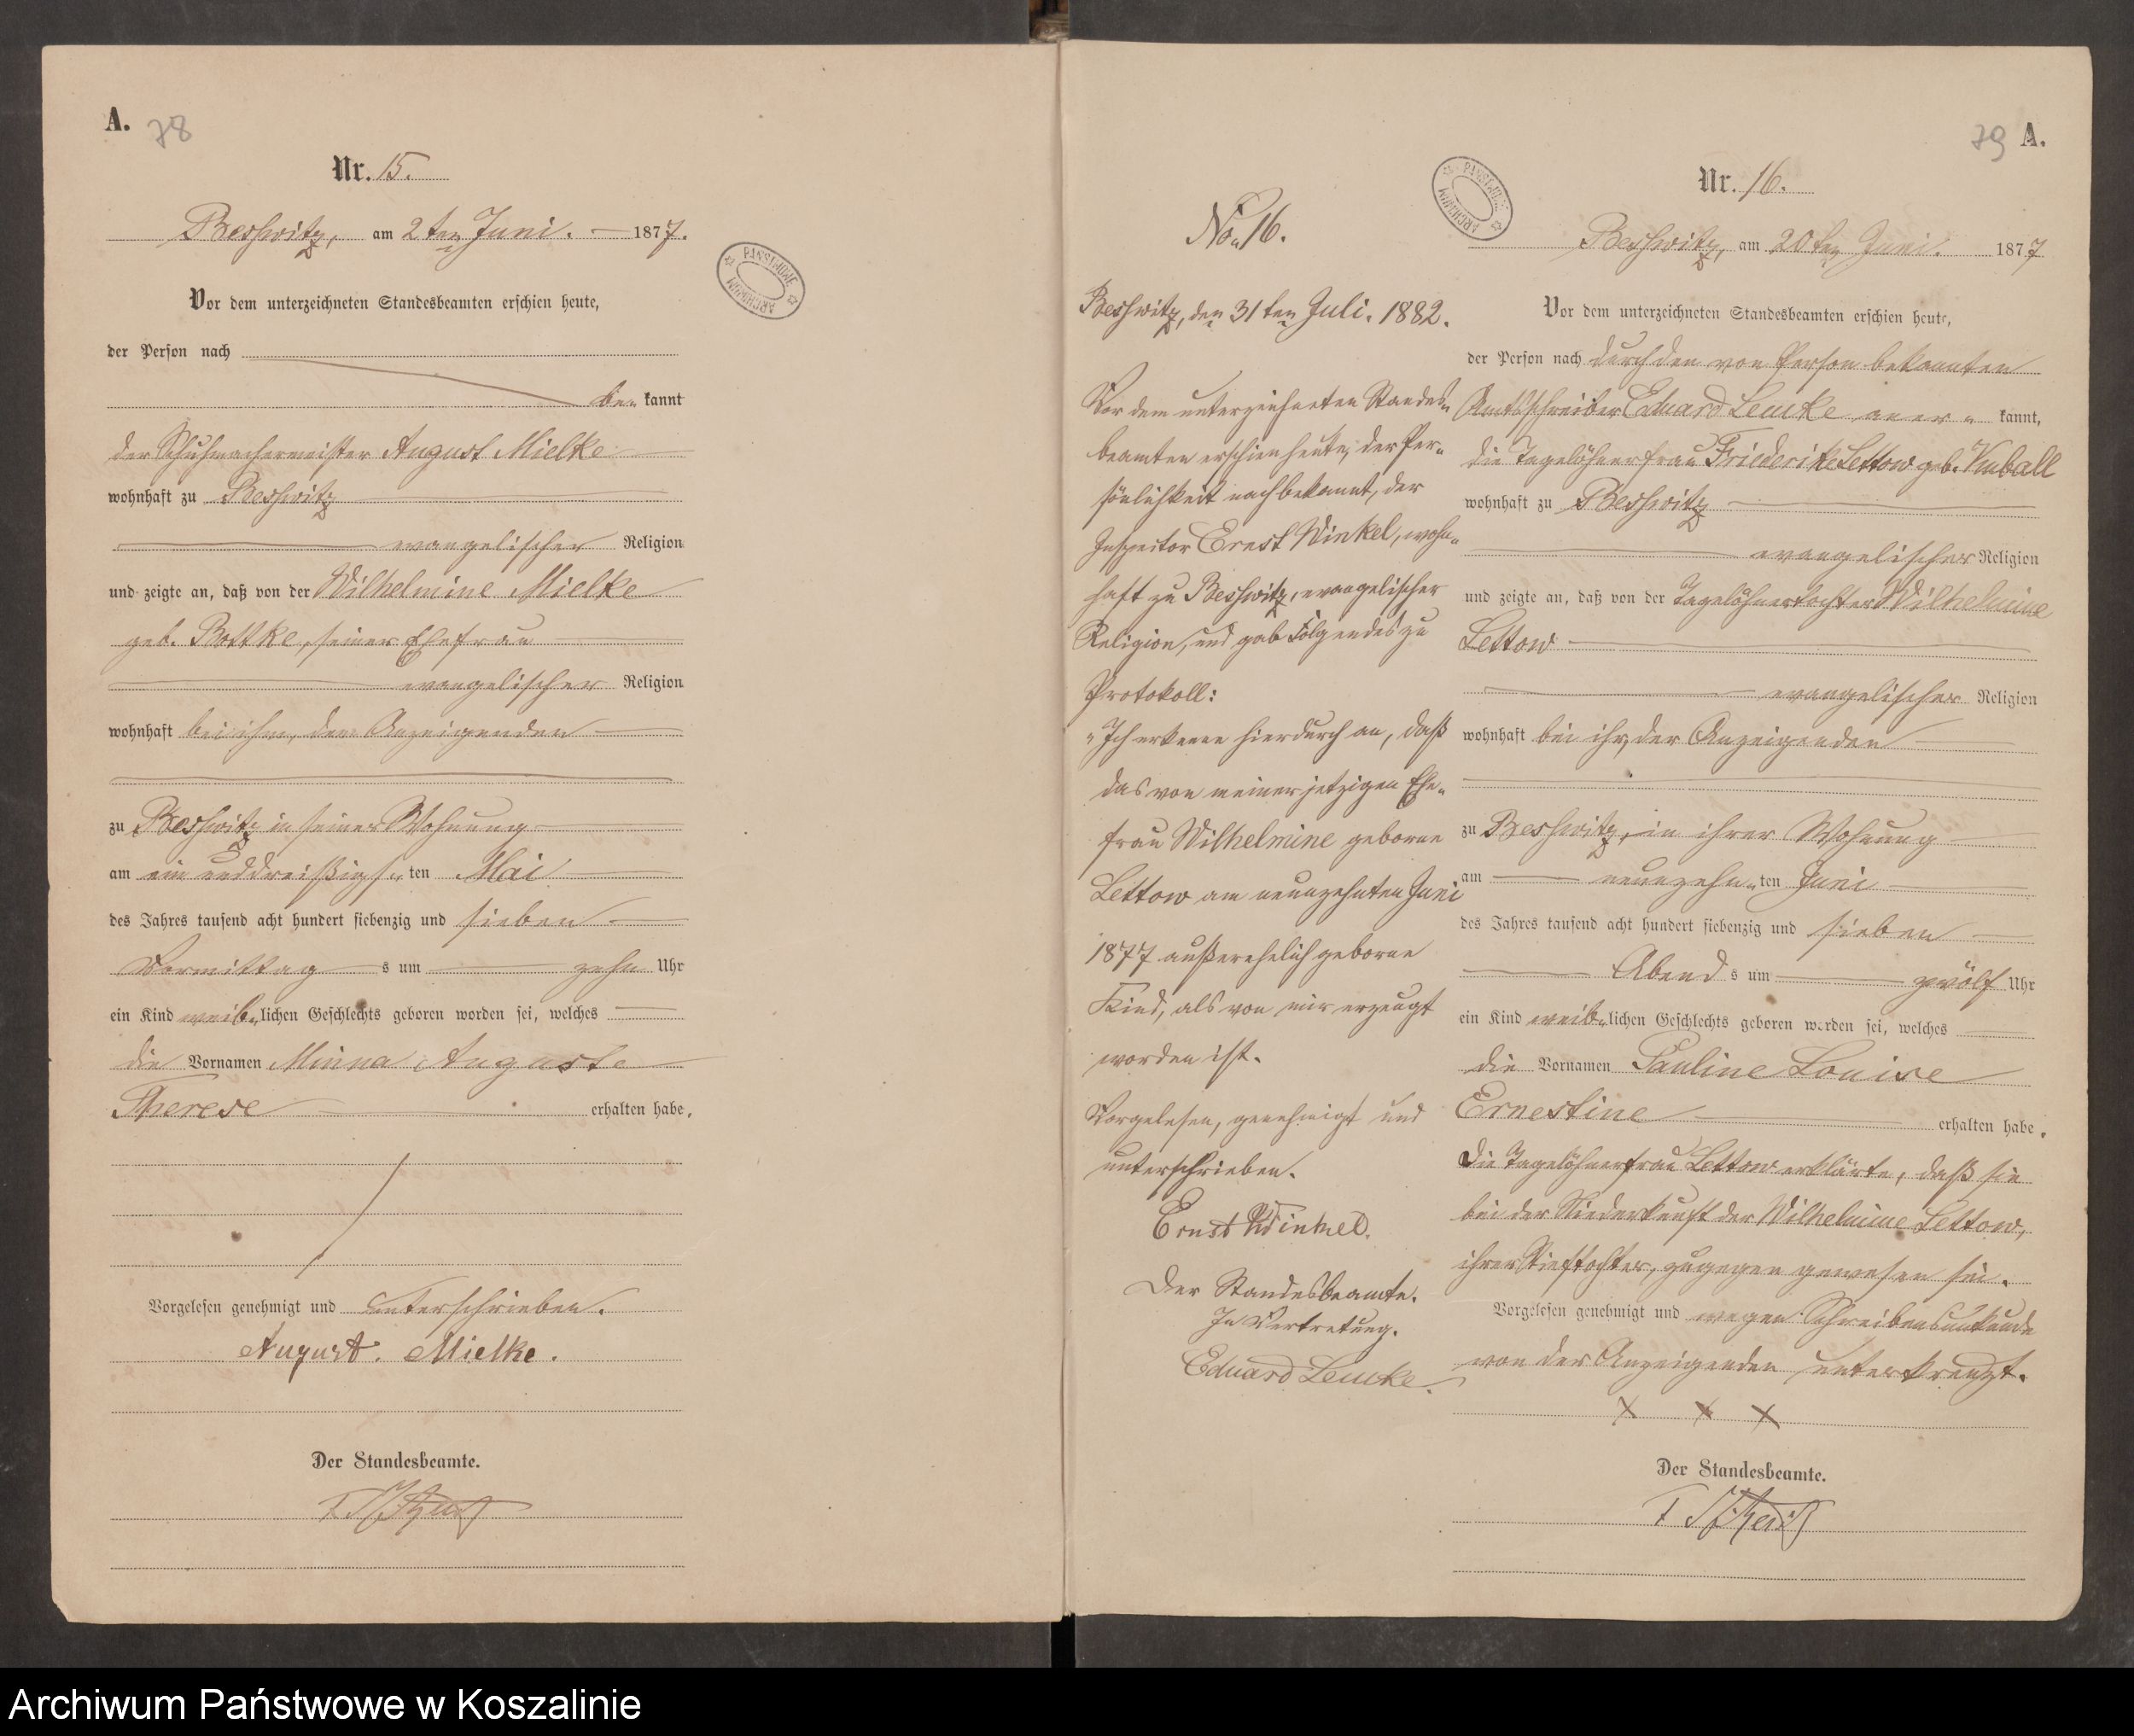 A.
78
Nr. 15.
Beßwitz, am 2ten Juni. 1877.
PANSTWOWE ARCHIWUM
Vor dem unterzeichneten Standesbeamten erschien heute,
der Person nach
be- kannt
der Schuhmachermeister August Mielke
wohnhaft zu Beßwitz
evangelischer Religion
und zeigte an, daß von der Wilhelmine Mielke
geb. Bottke, seiner Ehefrau
evangelischer Religion
wohnhaft bei ihm, dem Anzeigenden
zu Beßwitz in seiner Wohnung
am ein und dreißigs- ten Mai
des Jahres tausend acht hundert siebenzig und sieben
Vormittag s um zehn Uhr
ein Kind weib- lichen Geschlechts geboren worden sei, welches
die Vornamen Minna Auguste
Therese erhalten habe.
Vorgelesen genehmigt und unterschrieben.
August. Mielke.
Der Standesbeamte.
No. 16.
Beßwitz, den 31ten Juli. 1882.
Vor dem unterzeichneten Standes-
beamten erschien heute, der Per-
sönlichkeit nach bekannt, der
Inspector Ernst Winkel, wohn-
haft zu Beßwitz, evangelischer
Religion, und gab Folgendes zu
Protokoll:
"Ich erkenne hierdurch an, daß
das von meiner jetzigen Ehe-
frau Wilhelmine geborne
Lettow am neunzehnten Juni
1877 außerehelich geborne
Kind, als von mir erzeugt
worden ist.
Vorgelesen, genehmigt und
unterschrieben.
Ernst Winkel.
Der Standesbeamte.
In Vertretung.
Eduard Lemke.
79 A.
PANSTWOWE ARCHIWUM
Nr. 16.
Beßwitz, am 20ten Juni. 1877
Vor dem unterzeichneten Standesbeamten erschien heute,
der Person nach durch den von Person bekannten
Amtsschreiber Eduard Lemke aner- kannt,
die Tagelöhnerfrau Friederike Lettow geb.
wohnhaft zu Beßwitz
evangelischer Religion
und zeigte an, daß von der Tagelöhnertochter Wilhelmine
Lettow
evangelischer Religion
wohnhaft bei ihr, der Anzeigenden
zu Beßwitz, in ihrer Wohnung
am neunzehn- ten Juni
des Jahres tausend acht hundert siebenzig und sieben
Abend s um zwölf Uhr
ein Kind weib- lichen Geschlechts geboren worden sei, welches
die Vornamen Pauline Louise
Ernestine erhalten habe.
Die Tagelöhnerfrau Lettow erklärte, daß sie
bei der Niederkunft der Wilhelmine Lettow,
ihrer Stieftochter, zugegen gewesen sei.
Vorgelesen genehmigt und wegen Schreibensunkunde
von der Anzeigenden unterkreuzt.
X X X
Der Standesbeamte.
Archiwum Państwowe w Koszalinie